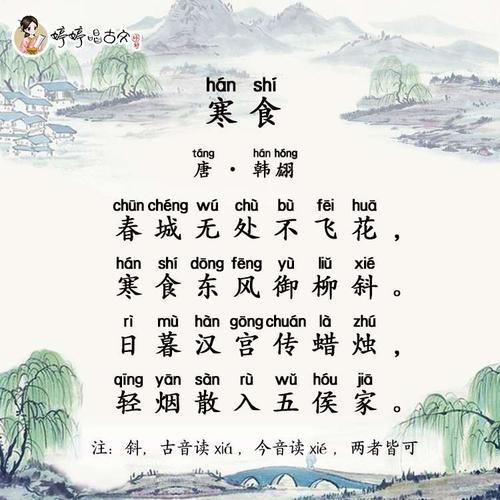 婷婷唱古文
hán shí
寒食
táng hán hóng
唐·韩翃
chūn chéng wú chù bù fēi huā
春城无处不飞花，
hán shí dōng fēng yù liǔ xié
寒食东风御柳斜。
rì mù hàn gōng chuán là zhú
日暮汉宫传蜡烛，
qīng yān sàn rù wǔ hóu jiā
轻烟散入五侯家。
注：斜，古音读 xiá，今音读 xié，两者皆可